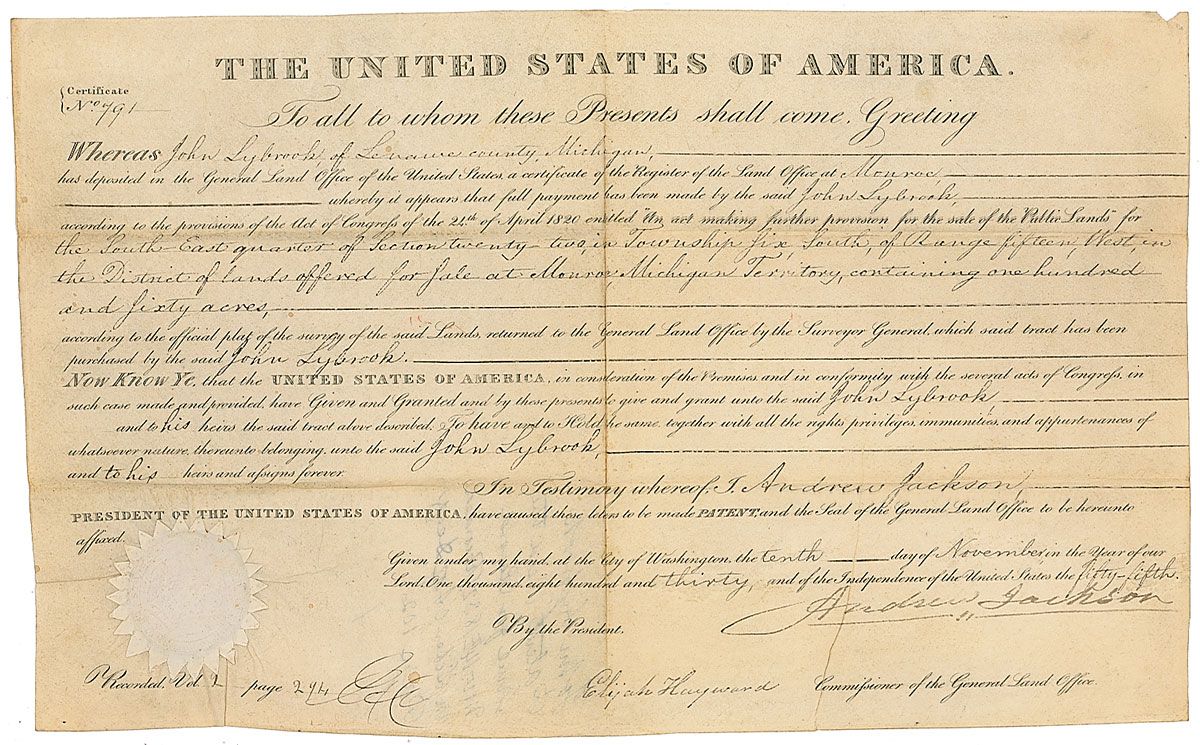 THE UNITED STATES OF AMERICA.
Certificate
No. 791
To all to whom these Presents shall come, Greeting
Whereas John Lybrook of Lenawe county, Michigan,
has deposited in the General Land Office of the United States, a certificate of the Register of the Land Office at Monroe,
whereby it appears that full payment has been made by the said John Lybrook,
according to the provisions of the Act of Congress of the 24th. of April 1820 entitled "An act making further provision for the sale of the Public Lands" for
the South-East quarter of Section twenty-two, in Township six, South, of Range fifteen, West, in
the District of lands offered for sale at Monroe, Michigan Territory, containing one hundred
and sixty acres,
according to the official plat of the survey of the said Lands, returned to the General Land Office by the Surveyor General, which said tract has been
purchased by the said John Lybrook.
Now Know Ye, that the UNITED STATES OF AMERICA, in consideration of the Premises and in conformity with the several acts of Congress, in
such case made and provided, have Given and Granted and by these presents to give and grant unto the said John Lybrook
and to his heirs the said tract above described, To have and to Hold the same, together with all the rights, privileges, immunities, and appurtenances of
whatsoever nature, thereunto belonging, unto the said John Lybrook,
and to his heirs and assigns forever.
In Testimony whereof, I, Andrew Jackson
PRESIDENT OF THE UNITED STATES OF AMERICA, have caused these leters to be made PATENT, and the Seal of the General Land Office to be hereunto
affixed.
Given under my hand, at the City of Washington, the tenth day of November, in the Year of our
Lord, One thousand, eight hundred and thirty, and of the Independence of the United States the fifty-fifth.
Andrew Jackson
By the President,
Recorded, Vol. 2 page 294
Elijah Hayward Commissioner of the General Land Office.